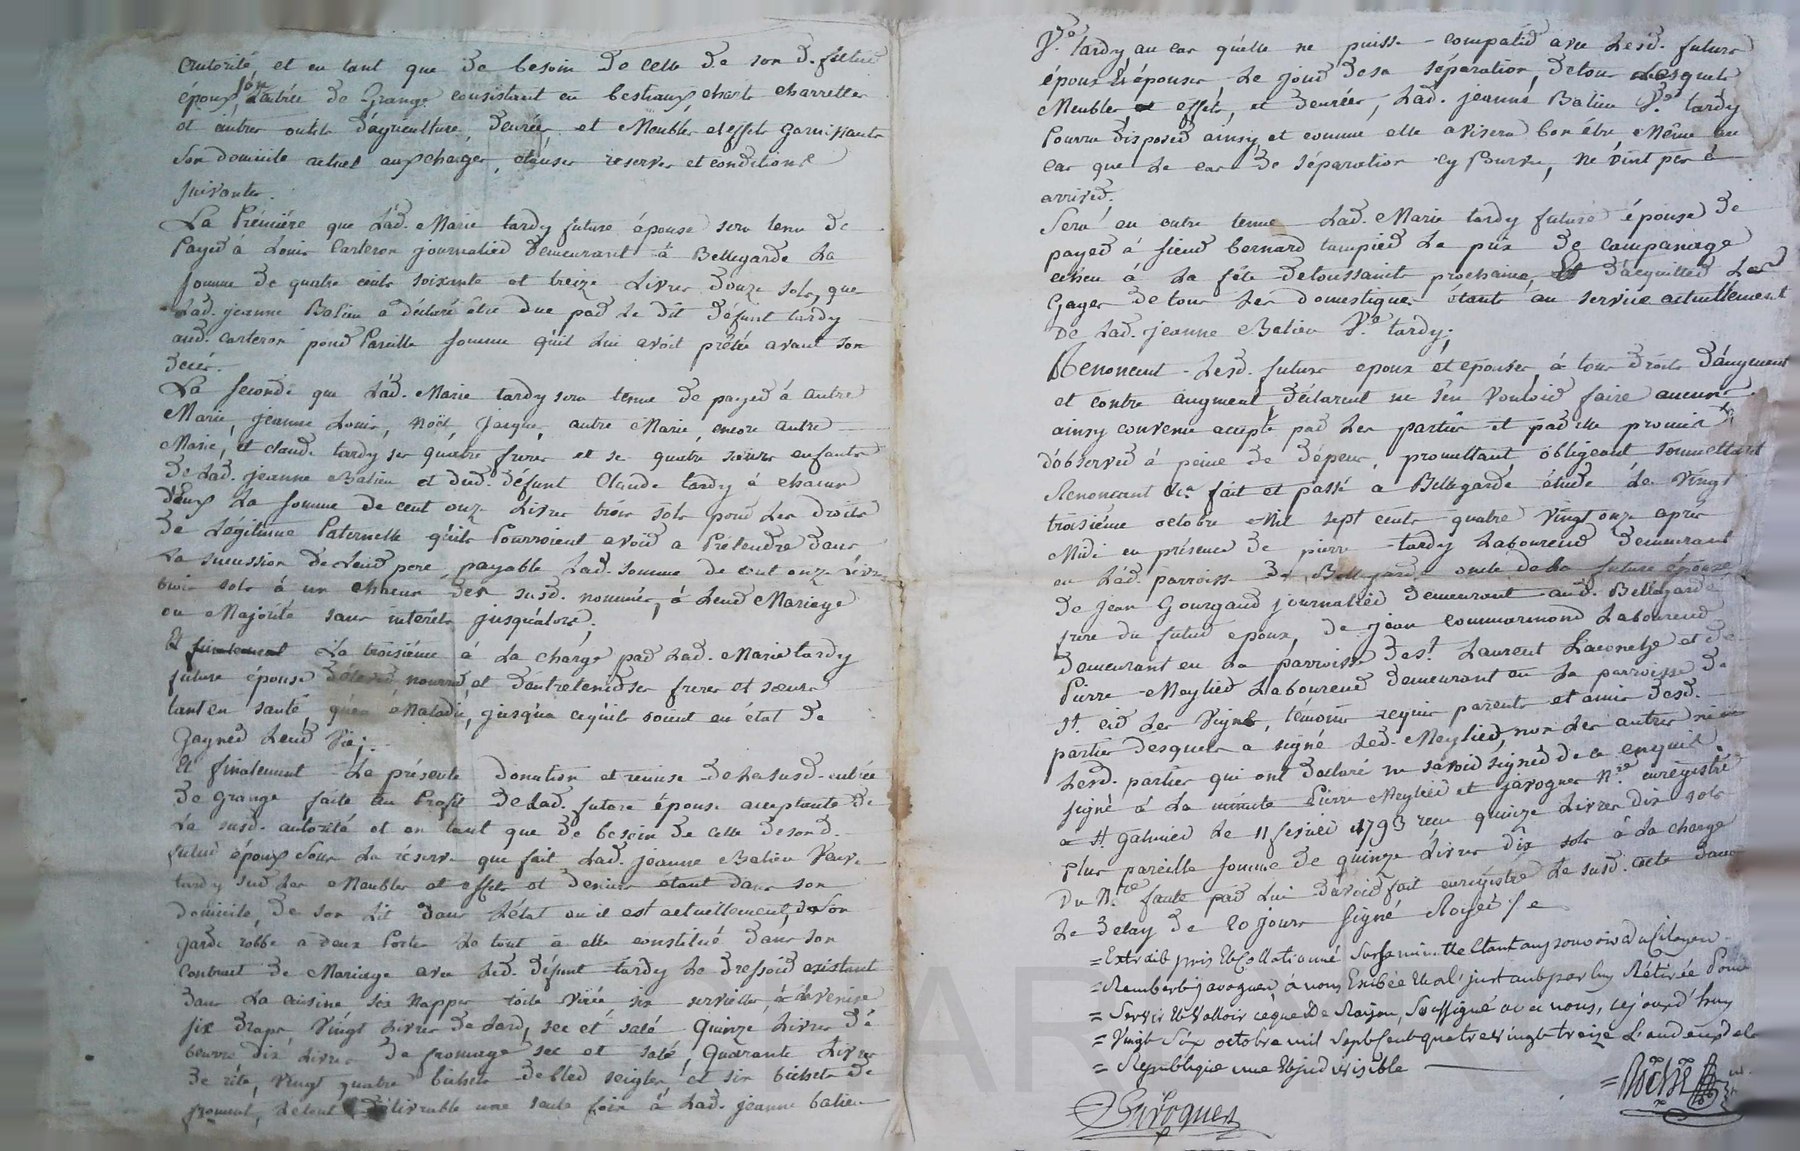 autorité et en tant que de besoin de celle de son d. futur
epoux son entrée de Grange consistant en bestiaux chars charrettes
et autres outils d'agriculture, denrées et Meubles et effets garnissants
son domicile actuel aux charges, clauses reserves et conditions
suivantes.
La Premiére que Lad. Marie tardy future épouse sera tenu de
Payer à Louis Carteron journalier demeurant à Bellegarde La
somme de quatre cents soixante et treize Livres douze sols, que
Lad. jeanne Balieu a déclaré être due par Le dit défunt tardy
aud. Carteron pour Pareille somme qu'il Lui avoit prêtée avant son
décés.
La seconde que Lad. Marie tardy sera tenue de payer à autre
Marie, jeanne Louis, noël, jacque, autre Marie, encore autre
Marie, et claude tardy ses quatre freres et ses quatre soeurs enfants
de Lad. jeanne Balieu et dud. défunt Claude tardy à chacun
d'eux La somme de cent onze Livres trois sols pour Les droits
de Légitime Paternelle qu'ils Pourroient avoir a Prétendre dans
La succession de Leur pere, payable Lad. somme de cent onze Livres
trois sols à un chacun des susd. nommés, à Leur Mariage
ou Majorité sans intérêts jusqu'alors;
Et finalement La troisiéme à La charge par Lad. Marie tardy
future épouse d'élever, nourrir, et d'entretenir ses freres et soeurs
tant en santé qu'en Maladie, jusqu'a ce qu'ils soient en état de
gagner Leur Vie;
Et finalement La présente donation et remise de La susd. entrée
de grange faite au Profit de Lad. future épouse acceptante de
La susd. autorité et en tant que de besoin de celle de son d.
futur époux sous La réserve que fait Lad. jeanne Balieu Veuve
tardy sur Les Meubles et effets et deniers étant dans son
domicile, de son Lit dans L'état ou il est actuellement, de son
garde robbe a deux Portes Le tout à elle constitué dans son
Contract de Mariage avec Led. défunt tardy Le dressoir existant
dans La cuisine six nappes toile virée six serviettes à la venise
six draps, Vingt Livres de Lard, sec et salé quinze Livres de
beurre dix Livres de fromage sec et salé, quarante Livres
de rite, Vingt quatre bichets de bled seigle, et six bichets de
froment, Le tout délivrable une seule foix à Lad. jeanne balieu
Ve. tardy au cas qu'elle ne puisse compatir avec Lesd. futurs
époux Et épouser Le jour de sa séparation, de tous Lesquels
Meubles et effets, et denrées, Lad. jeanne Balieu Ve. tardy
Pourra disposer ainsy et comme elle avisera bon être Même au
cas que Le cas de séparation cy Prévu, ne vint pas à
arriver.
Sera en outre tenue Lad. Marie tardy future épouse de
payer à sieur bernard tampier Le prix de companage
échu à La fête de toussaint prochaine, Et d'acquitter Les
Gages de tous Les domestiques étants au service actuellement
De Lad. jeanne Balieu Ve. tardy;
Renoncent Lesd. futurs epoux et épouser à tous droits d'augment
et contre augment, déclarent ne s'en Vouloir faire aucuns
ainsy convenu accepté par Les parties et par elle promis
d'observer à peine de dépens, promettant obligeant soumettant
Renonçant &ca. fait et passé a Bellegarde étude Le Vingt
troisiéme octobre Mil sept cents quatre Vingt onze aprés
Midi en présence de pierre tardy Laboureur demeurant
en Lad. parroisse de Bellegarde oncle de La future épouse
de jean Gourgaud journalier demeurant aud. Bellegarde
frere du futur époux, de jean Commarmond Laboureur
demeurant en La parroisse de St. Laurent Laconche et de
Pierre Meylier Laboureur demeurant en La parroisse de
St. cir Les Vignes, témoins requis parents et amis desd.
parties desquels a signé Led. Meylier, non Les autres ni
Lesd. parties qui ont déclaré ne savoir signer de ce enquis.
signé à La minute Pierre Meylier et javogues Nre. enregistré
a St. galmier Le 11 fevrier 1793 reçu quinze Livres dix sols
Plus pareille somme de quinze Livres dix sols à La charge
Du Nre. faute par Lui d'avoir fait enregistré Le susd. acte dans
Le delay de 20 jours signé Royer /e
= Extrait pris Et Collationné Sur la minutte Etant au pouvoir du Citoyen
= Rambert javogues à nous Exibée Et a L'instant par luy Rétirée Pour
= Servir Et Valloir ce que de Raison, Soussigné avec nous, ce jourd'huy
= Vingt Six octobre mil Sept cent quatre vingt treize L'an deux de la
= République une Et indivisible
Javogues